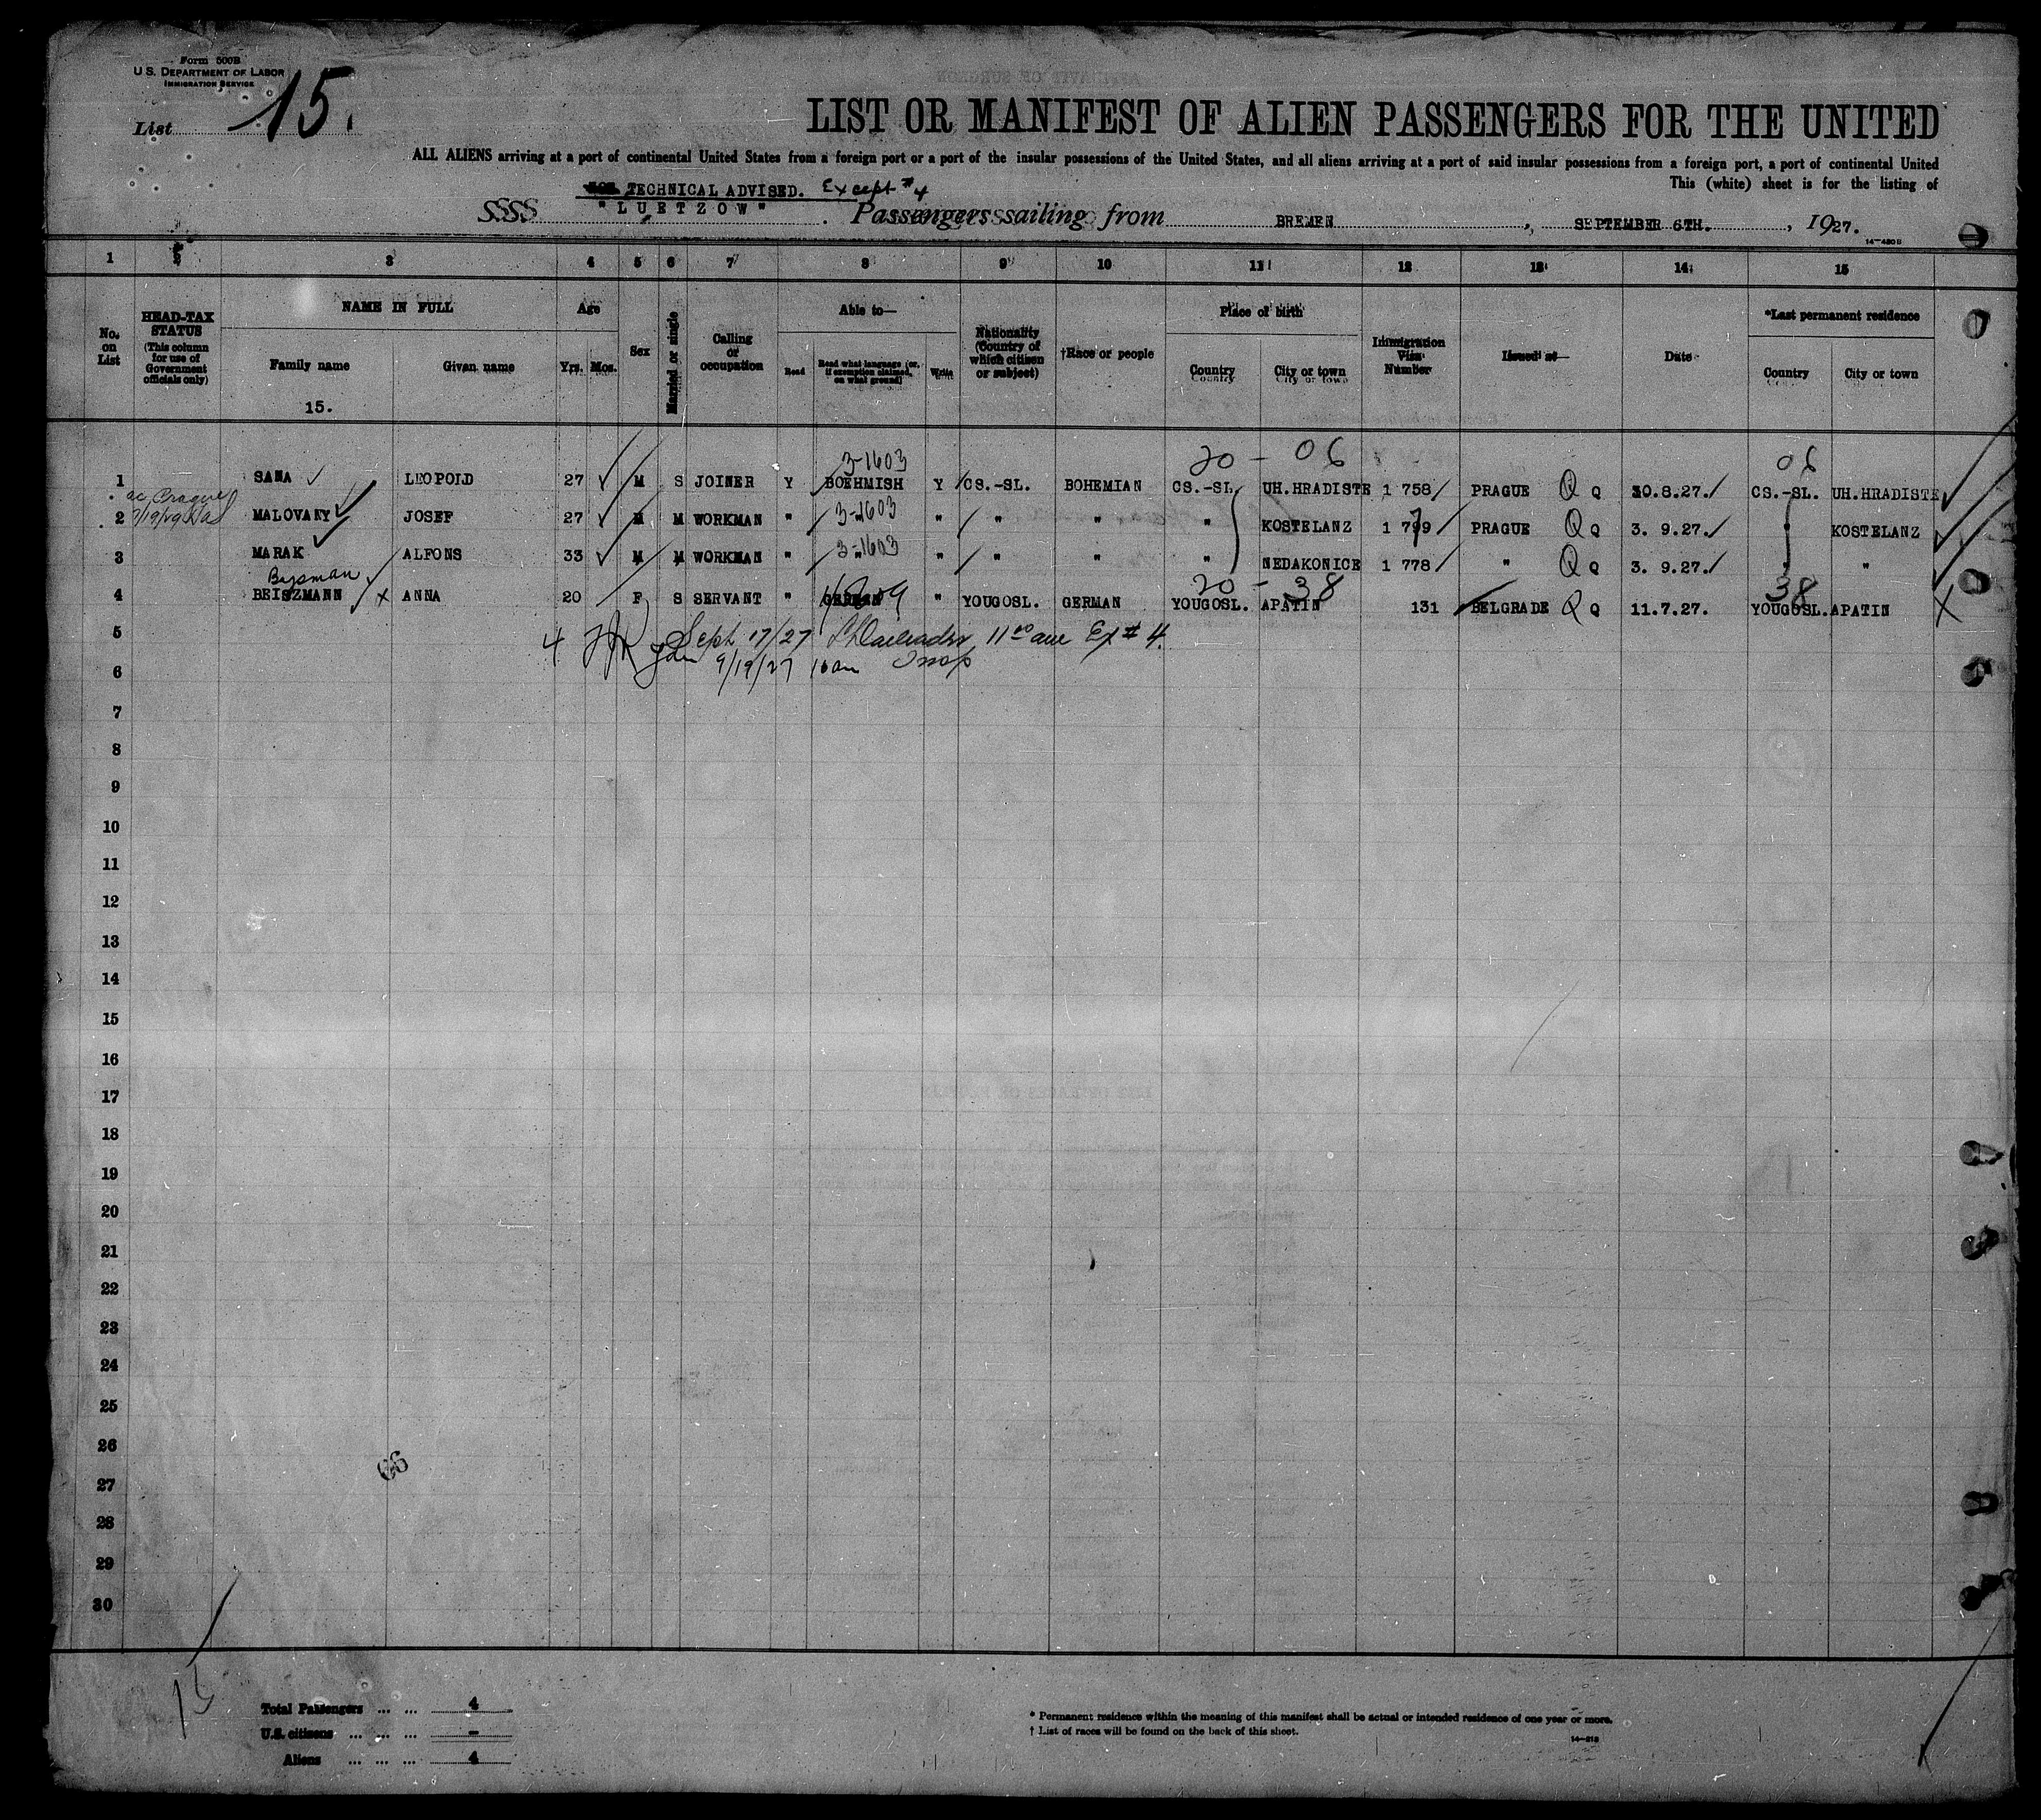 Form 500B
U.S. DEPARTMENT OF LABOR
IMMIGRATION SERVICE
List 15.
LIST OR MANIFEST OF ALIEN PASSENGERS FOR THE UNITED
ALL ALIENS arriving at a port of continental United States from a foreign port or a port of the insular possessions of the United States, and all aliens arriving at a port of said insular possessions from a foreign port, a port of continental United
This (white) sheet is for the listing of
TECHNICAL ADVISED. Except #4
SSSS "LUETZOW". Passengers sailing from BREMEN, SEPTEMBER 6TH., 1927.
14-480 B
1 3 4 5 6 7 8 9 10 11 12 13 14 15
No. on List
HEAD-TAX STATUS (This column for use of Government officials only)
NAME IN FULL
Family name Given name
15.
Age
Yrs. Mos.
Sex
Married or single
Calling or occupation
Able to—
Read Read what language (or, if exemption claimed, on what ground) Write
Nationality (Country of which citizen or subject)
†Race or people
Place of birth
Country City or town
Immigration Visa Number
Issued at—
Date
*Last permanent residence
Country City or town
3-1603 20 - 06 06
1 SANA LEOPOLD 27 M S JOINER Y BOEHMISH Y CS.-SL. BOHEMIAN CS.-SL. UH.HRADISTE 1 758 PRAGUE Q Q 30.8.27. CS.-SL. UH.HRADISTE
3-1603
2 MALOVANY JOSEF 27 M M WORKMAN " " " " " KOSTELANZ 1 799 PRAGUE Q Q 3. 9.27. " KOSTELANZ
3-1603
3 MARAK ALFONS 33 M M WORKMAN " " " " " NEDAKONICE 1 778 " Q Q 3. 9.27. " "
20 - 38 38
4 BEISZMANN X ANNA 20 F S SERVANT " GERMAN " YOUGOSL. GERMAN YOUGOSL. APATIN 131 BELGRADE Q Q 11.7.27. YOUGOSL. APATIN X
5
4 Sept 17/27 Ex # 4.
6
9/19/27 10 am
7
8
9
10
11
12
13
14
15
16
17
18
19
20
21
22
23
24
25
26
27
28
29
30
Total Passengers ... ... 4
U.S. citizens ... ... ... -
Aliens ... ... ... 4
* Permanent residence within the meaning of this manifest shall be actual or intended residence of one year or more.
† List of races will be found on the back of this sheet.